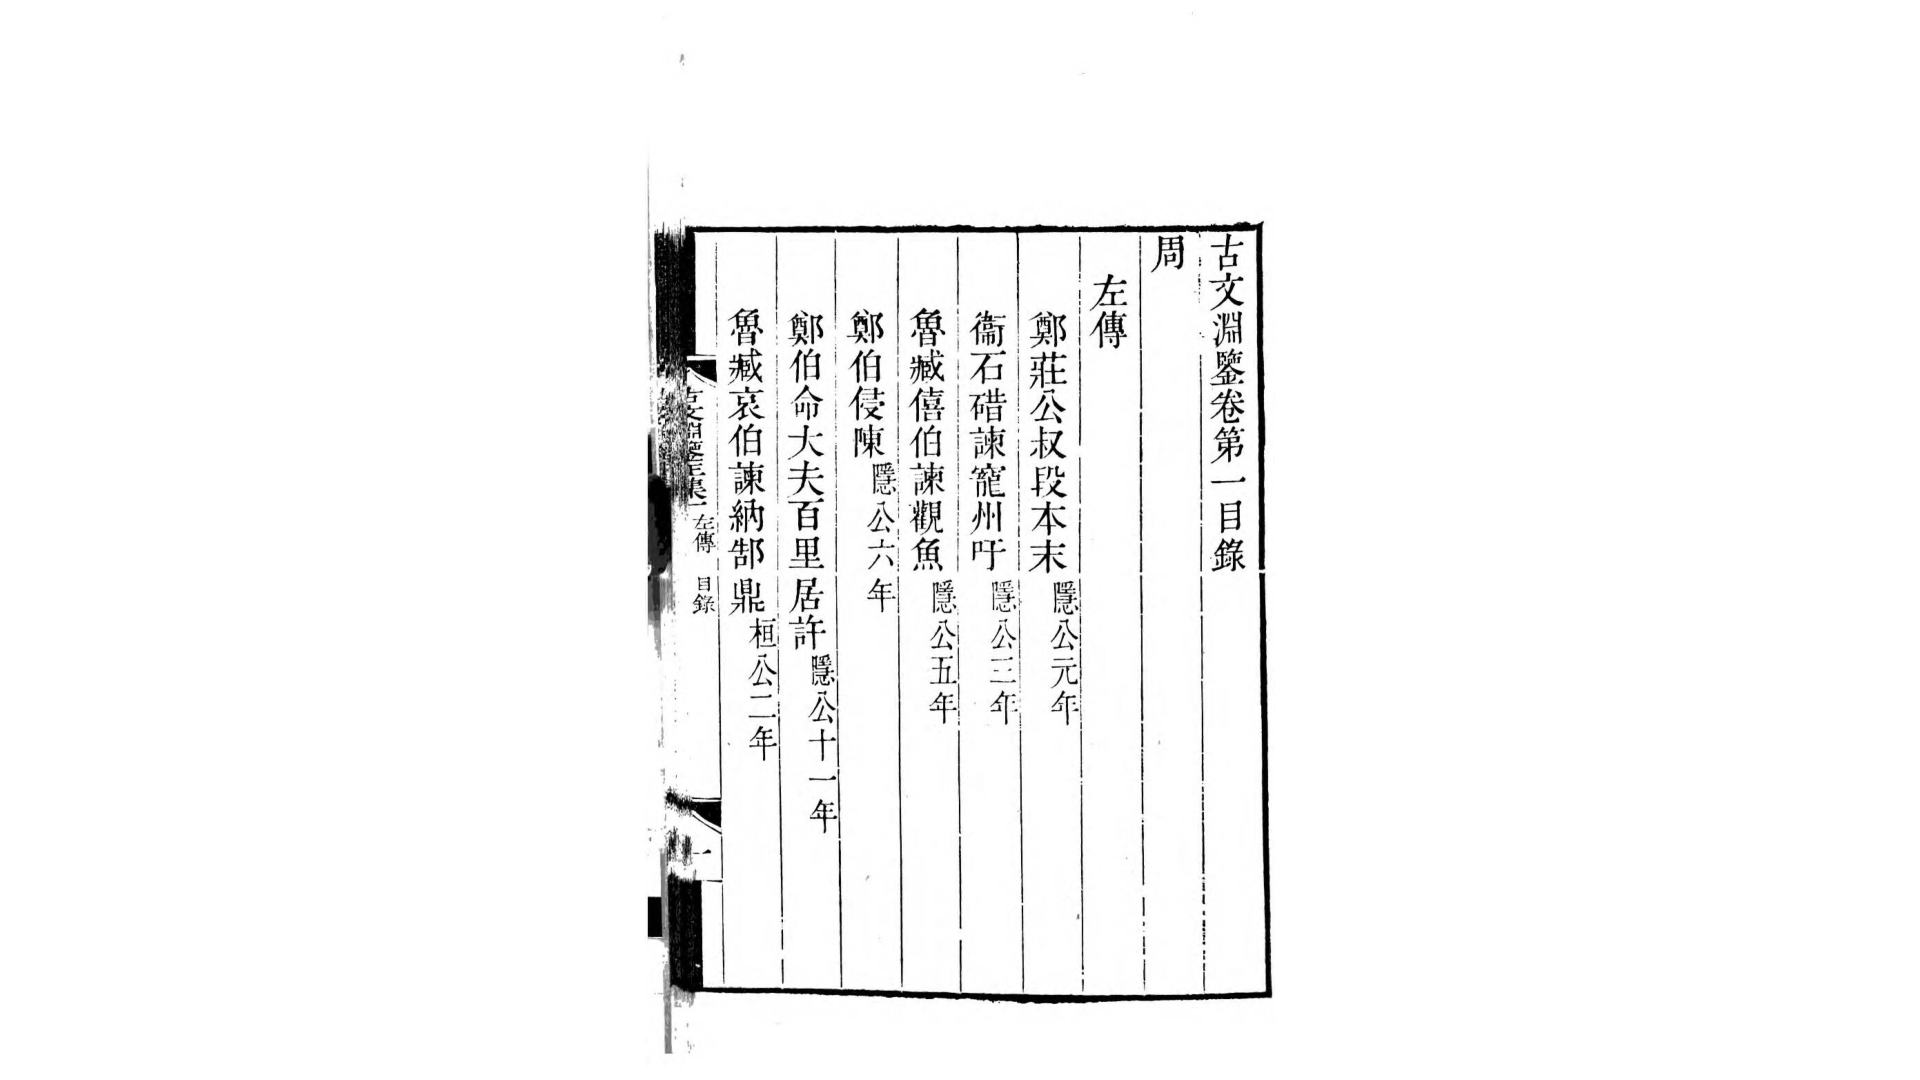 古文淵鑒卷第一目錄
周
左傳
鄭莊公叔段本末隱公元年
衞石碏諫寵州吁隱公三年
魯臧僖伯諫觀魚隱公五年
鄭伯侵陳隱公六年
鄭伯命大夫百里居許隱公十一年
魯臧哀伯諫納郜鼎桓公二年
左傳 目錄
一